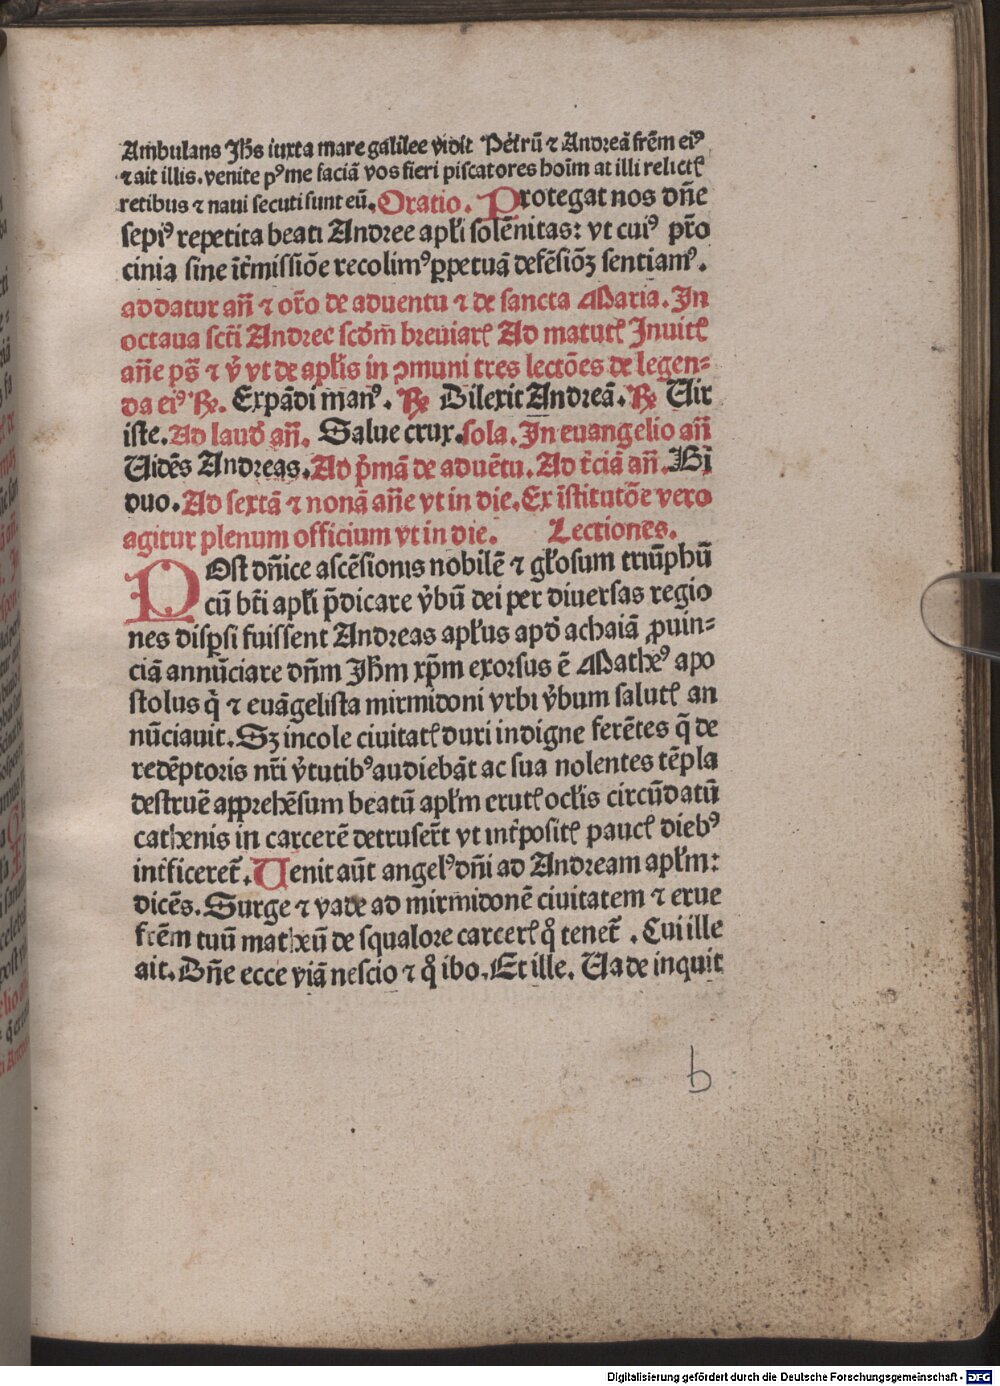 Ambulans Jħs iuxta mare galilee vidit Petrū ⁊ Andreā frēm eiꝰ
⁊ ait illis. venite pꝰ me faciā vos fieri piscatores hoīm at illi relictꝭ
retibus ⁊ naui secuti sunt eū. Oratio. Protegat nos dn̄e
sepiꝰ repetita beati Andree apl̄i solēnitas: vt cuiꝰ pr̄o
cinia sine īt̄missiōe recolimꝰ ꝑpetuā defēsiōꝫ sentiamꝰ.
addatur an̄ ⁊ or̄o de aduentu ⁊ de sancta Maria. In
octaua sct̄i Andree scd̄m̄ breuiarꝭ Ad matutꝭ Inuitꝭ
an̄e ps̄ ⁊ v̄ vt de apl̄is in ꝯmuni tres lectōes de legen-
da eiꝰ ℞. Expādi manꝰ. ℞ Dilexit Andreā. ℞ Uir
iste. Ad laud̄ an̄. Salue crux. sola. In euangelio an̄
Uidēs Andreas. Ad p̄mā de aduētu. Ad t̄ciā an̄. Bī
duo. Ad sextā ⁊ nonā an̄e vt in die. Ex īstitutōe vero
agitur plenum officium vt in die. Lectiones.
Post dn̄ice ascēsionis nobilē ⁊ gl̄osum triūphū
cū bt̄i apl̄i p̄dicare v̄bū dei per diuersas regio
nes disꝑsi fuissent Andreas apl̄us apd̄ achaiā ꝓuin-
ciā annūciare dn̄m Jħm xp̄m exorsus ē Matheꝰ apo
stolus q̄ ⁊ euāgelista mirmidoni vrbi v̄bum salutꝭ an
nūciauit. Sꝫ incole ciuitatꝭ duri indigne ferētes q̄ de
redēptoris nr̄i v̄tutibꝰ audiebāt ac sua nolentes tēpla
destruē apprehēsum beatū apl̄m erutꝭ ocl̄is circūdatū
cathenis in carcerē detruser̄t vt int̄positꝭ paucꝭ diebꝰ
int̄ficeret̄. Uenit aūt angelꝰ dn̄i ad Andream apl̄m:
dicēs. Surge ⁊ vade ad mirmidonē ciuitatem ⁊ erue
frēm tuū matheū de squalore carcerꝭ q̊ tenet̄. Cui ille
ait. Dn̄e ecce viā nescio ⁊ q̊ ibo. Et ille. Uade inquit
b
Digitalisierung gefördert durch die Deutsche Forschungsgemeinschaft - DFG